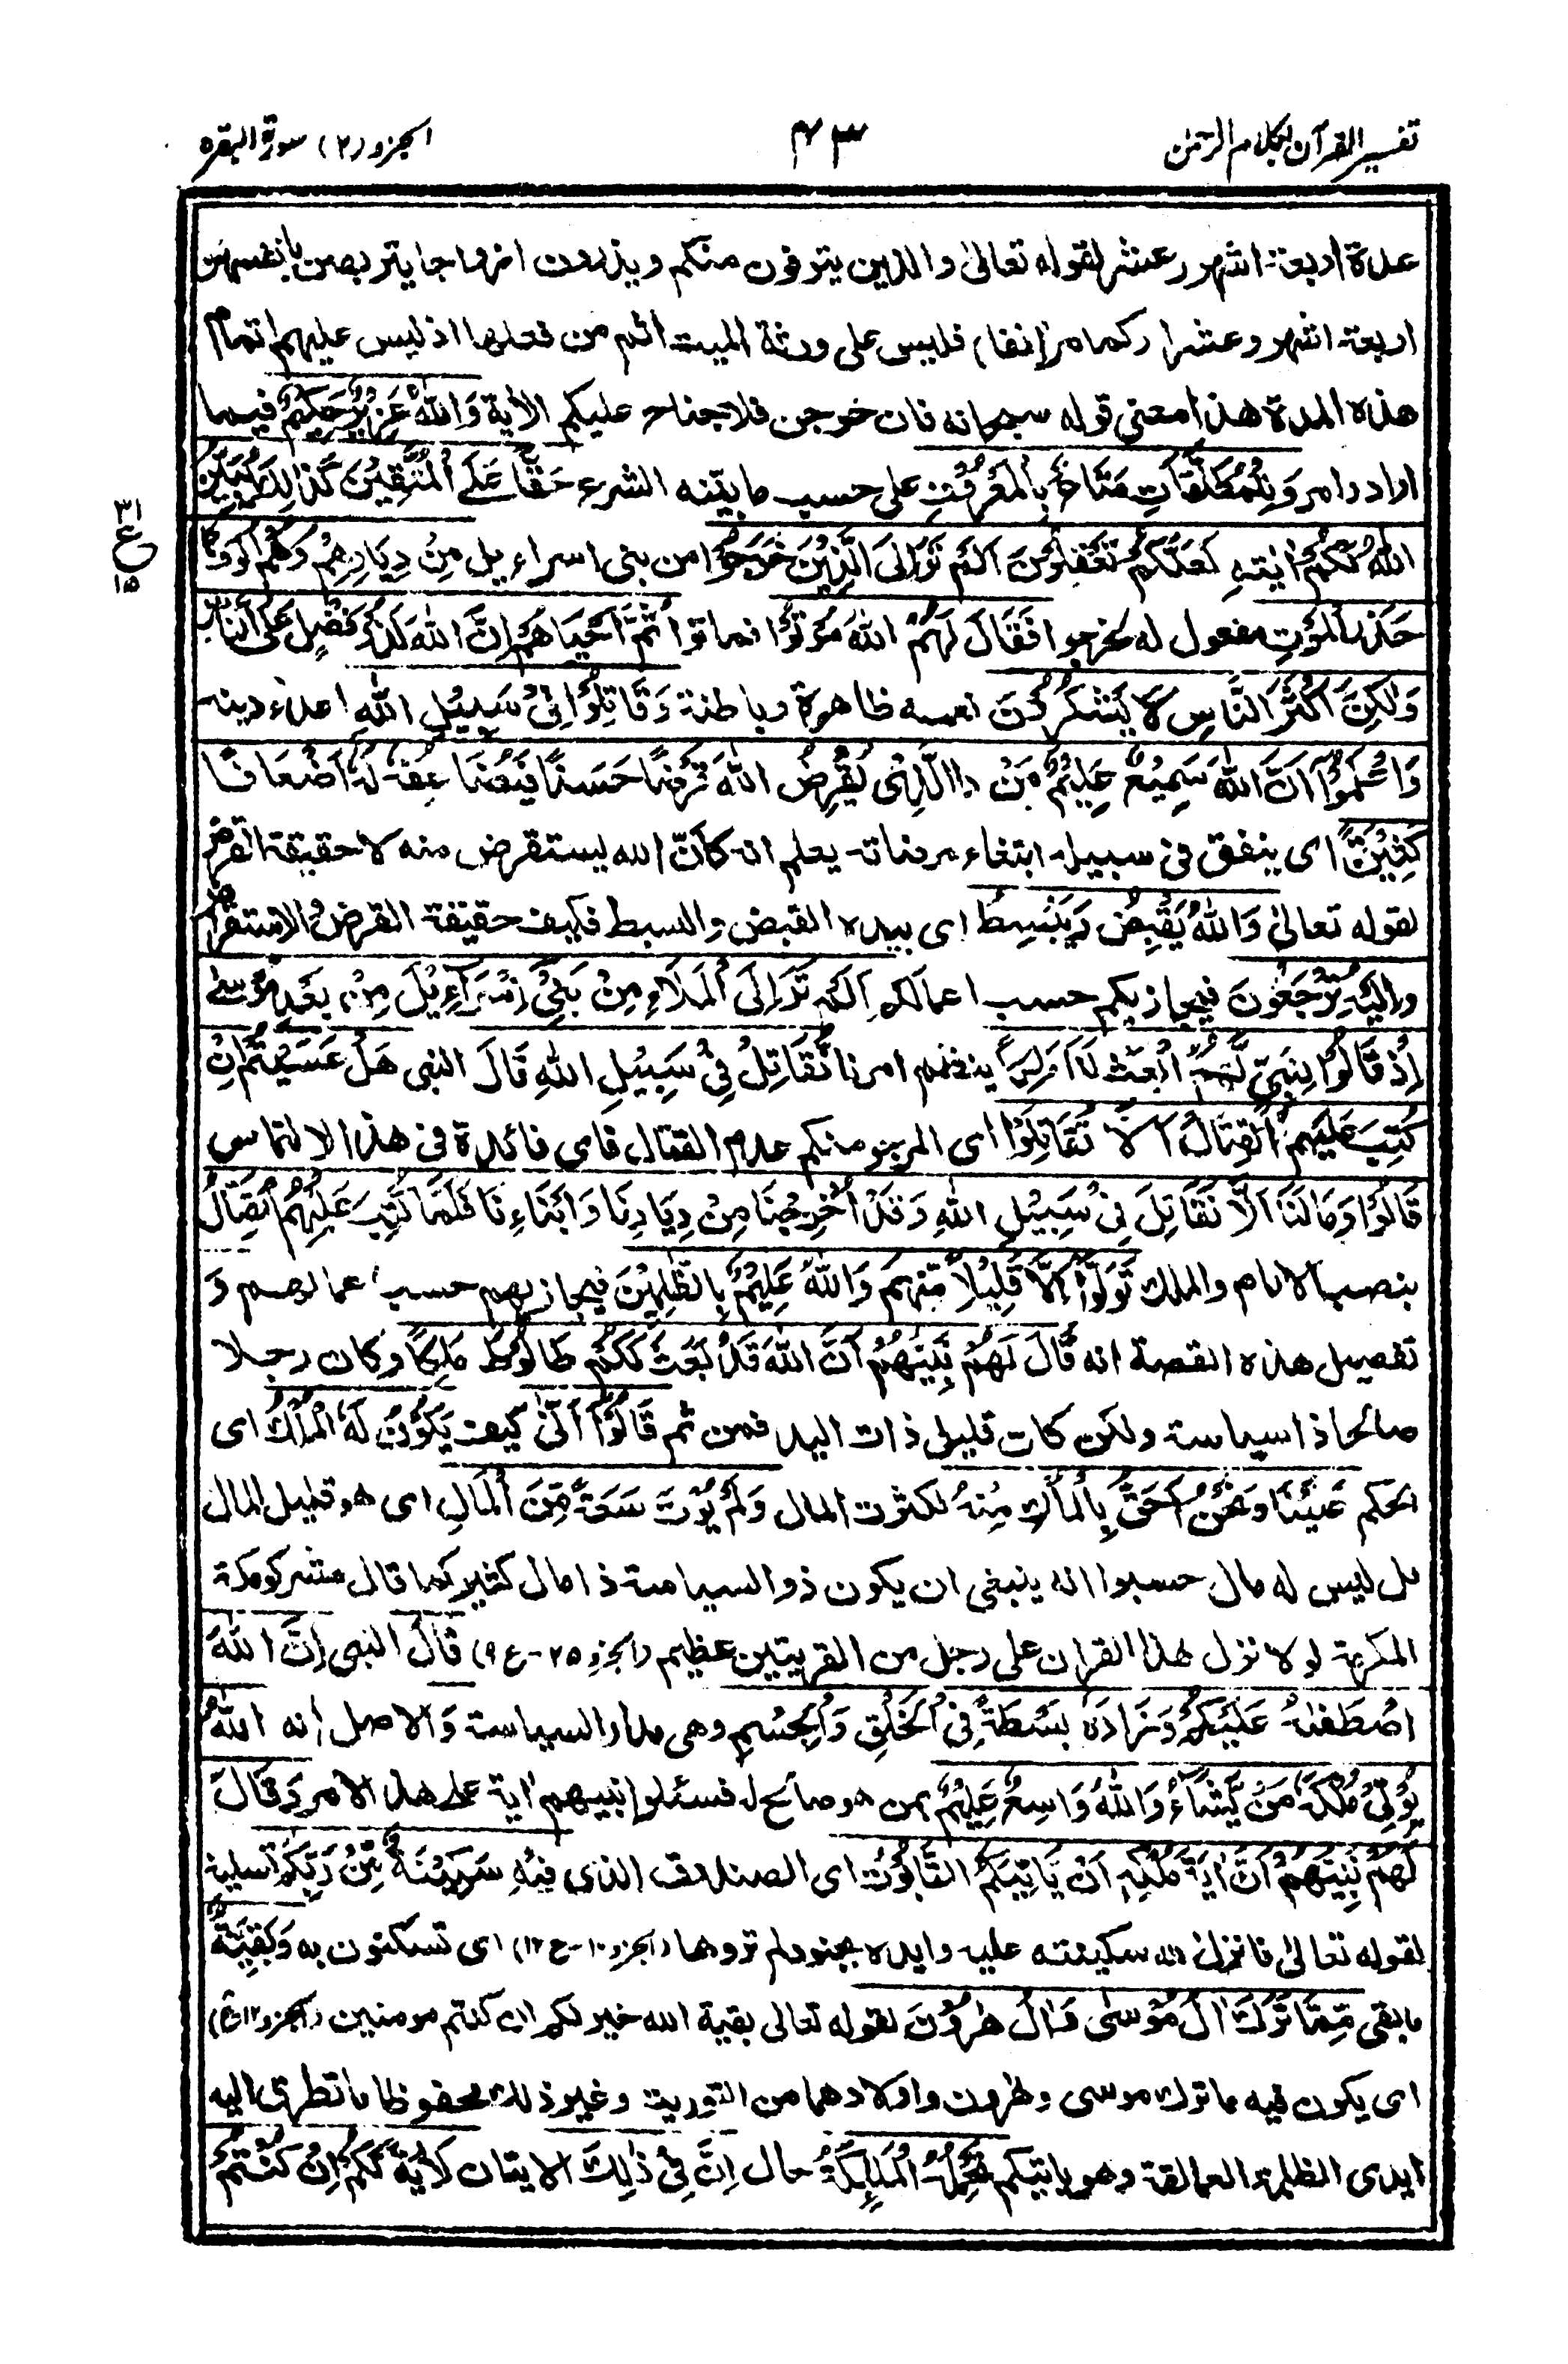 تفسير القرآن بكلام الرحمٰن
٤٣
الجزو (٢) سورة البقره
عدة اربعة اشهر وعشر لقوله تعالىٰ والذين يتوفون منكم ويذرون ازواجا يتربصن بانفسهن
اربعة اشهر وعشرا (كما مر انفا) فليس على ورثة الميت اثم من فعلها اذ ليس عليهم اتمام
هذه المدة هذا معنى قوله سبحانه فان خرجن فلا جناح عليكم الاٰية وَاللهُ عَزِيْزٌ حَكِيْمٌ فيما
اراد وامر وَلِلْمُطَلَّقَاتِ مَتَاعٌ بِالْمَعْرُوْفِ على حسب ما بيّنه الشرع حَقًّا عَلَى الْمُتَّقِيْنَ كَذٰلِكَ يُبَيِّنُ
اللهُ لَكُمْ اٰيٰتِهٖ لَعَلَّكُمْ تَعْقِلُوْنَ اَلَمْ تَرَ اِلَى الَّذِيْنَ خَرَجُوْا من بنى اسراءيل مِنْ دِيَارِهِمْ وَهُمْ اُلُوْفٌ
٣١
ع
١٥
حَذَرَ الْمَوْتِ مفعول له لخرجوا فَقَالَ لَهُمُ اللهُ مُوْتُوْا فماتوا ثُمَّ اَحْيَاهُمْ اِنَّ اللهَ لَذُوْ فَضْلٍ عَلَى النَّاسِ
وَلٰكِنَّ اَكْثَرَ النَّاسِ لَا يَشْكُرُوْنَ نعمه ظاهرة وباطنة وَقَاتِلُوْا فِىْ سَبِيْلِ اللهِ اعداء دينه
وَاعْلَمُوْا اَنَّ اللهَ سَمِيْعٌ عَلِيْمٌ مَنْ ذَا الَّذِىْ يُقْرِضُ اللهَ قَرْضًا حَسَنًا فَيُضٰعِفَهٗ لَهٗ اَضْعَافًا
كَثِيْرَةً اى ينفق فى سبيله ابتغاء مرضاته يعلم انه كاَنّ الله يستقرض منه لا حقيقة القرض
لقوله تعالىٰ وَاللهُ يَقْبِضُ وَيَبْسُطُ اى بيده القبض والبسط فكيف حقيقة القرض والاستقراض
وَاِلَيْهِ تُرْجَعُوْنَ فيجازيكم حسب اعمالكم اَلَمْ تَرَ اِلَى الْمَلَاِ مِنْ بَنِىْ اِسْرَآءِيْلَ مِنْ بَعْدِ مُوْسٰى
اِذْ قَالُوْا لِنَبِىٍّ لَّهُمُ ابْعَثْ لَنَا مَلِكًا ينظم امرنا نُقَاتِلْ فِىْ سَبِيْلِ اللهِ قَالَ النبى هَلْ عَسَيْتُمْ اِنْ
كُتِبَ عَلَيْكُمُ الْقِتَالُ اَلَّا تُقَاتِلُوْا اى المرجو منكم عدم القتال فاى فائدة فى هذا الالتماس
قَالُوْا وَمَا لَنَا اَلَّا نُقَاتِلَ فِىْ سَبِيْلِ اللهِ وَقَدْ اُخْرِجْنَا مِنْ دِيَارِنَا وَاَبْنَاءِنَا فَلَمَّا كُتِبَ عَلَيْهِمُ الْقِتَالُ
بنصب الامام والملك تَوَلَّوْا اِلَّا قَلِيْلًا مِّنْهُمْ وَاللهُ عَلِيْمٌ بِالظّٰلِمِيْنَ فيجازيهم حسب اعمالهم وَ
تفصيل هذه القصة انه قَالَ لَهُمْ نَبِيُّهُمْ اَنَّ اللهَ قَدْ بَعَثَ لَكُمْ طَالُوْتَ مَلِكًا وكان رجلا
صالحا ذا سياسة ولكن كان قليل ذات اليد فمن ثم قَالُوْا اَنّٰى كيف يَكُوْنُ لَهُ الْمُلْكُ اى
الحكم عَلَيْنَا وَنَحْنُ اَحَقُّ بِالْمُلْكِ مِنْهُ لكثرت المال وَلَمْ يُؤْتَ سَعَةً مِّنَ الْمَالِ اى هو قليل المال
بل ليس له مال حسبوا انه ينبغى ان يكون ذو السياسة ذا مال كثير كما قال مشركو مكة
المكرمة لو لا نزل هذا القران على رجل من القريتين عظيم (الجزء ٢٥ - ع ٩) قَالَ النبى اِنَّ اللهَ
اصْطَفٰىهُ عَلَيْكُمْ وَزَادَهٗ بَسْطَةً فِى الْخَلْقِ وَالْجِسْمِ وهى مدار السياسة وَالاصل انه اللهُ
يُؤْتِىْ مُلْكَهٗ مَنْ يَّشَآءُ وَاللهُ وَاسِعٌ عَلِيْمٌ بمن هو صالح له فسئلوا نبيهم اٰية على هذا الامر وَقَالَ
لَهُمْ نَبِيُّهُمْ اَنَّ اٰيَةَ مُلْكِهٖ اَنْ يَّاْتِيَكُمُ التَّابُوْتُ اى الصندوق الذى فِيْهِ سَكِيْنَةٌ مِّنْ رَبِّكُمْ تسلية
لقوله تعالىٰ فانزل الله سكينته عليه وايده بجنود لم تروها (الجزو ١٠ - ع ١٢) اى تسكنون به وَبَقِيَّةٌ
ما بقى مِّمَّا تَرَكَ اٰلُ مُوْسٰى وَاٰلُ هٰرُوْنَ لقوله تعالى بقية الله خير لكم ان كنتم مومنين (الجزو ١٢ ع)
اى يكون فيه ما ترك موسى وهٰرون واولادهما من التوريت وغير ذلك محفوظا ما تطرق اليه
ايدى الظلمة العمالقة وهو ياتيكم تَحْمِلُهُ الْمَلٰٓئِكَةُ حال اِنَّ فِىْ ذٰلِكَ الايتان لَاٰيَةً لَّكُمْ اِنْ كُنْتُمْ